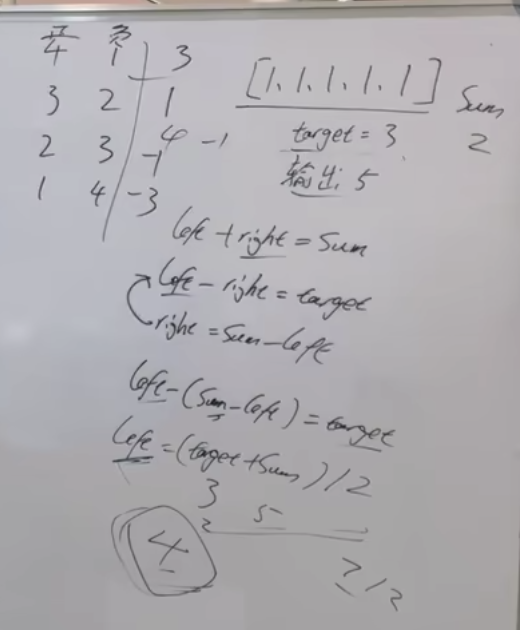 正 负
4 1 3
3 2 1
2 3 -1
1 4 -3
4 -1
[1,1,1,1,1] Sum
target = 3 2
输出: 5
left + right = Sum
left - right = target
right = Sum - left
left - (Sum - left) = target
left = (target + Sum) / 2
3 5
2
4
/2